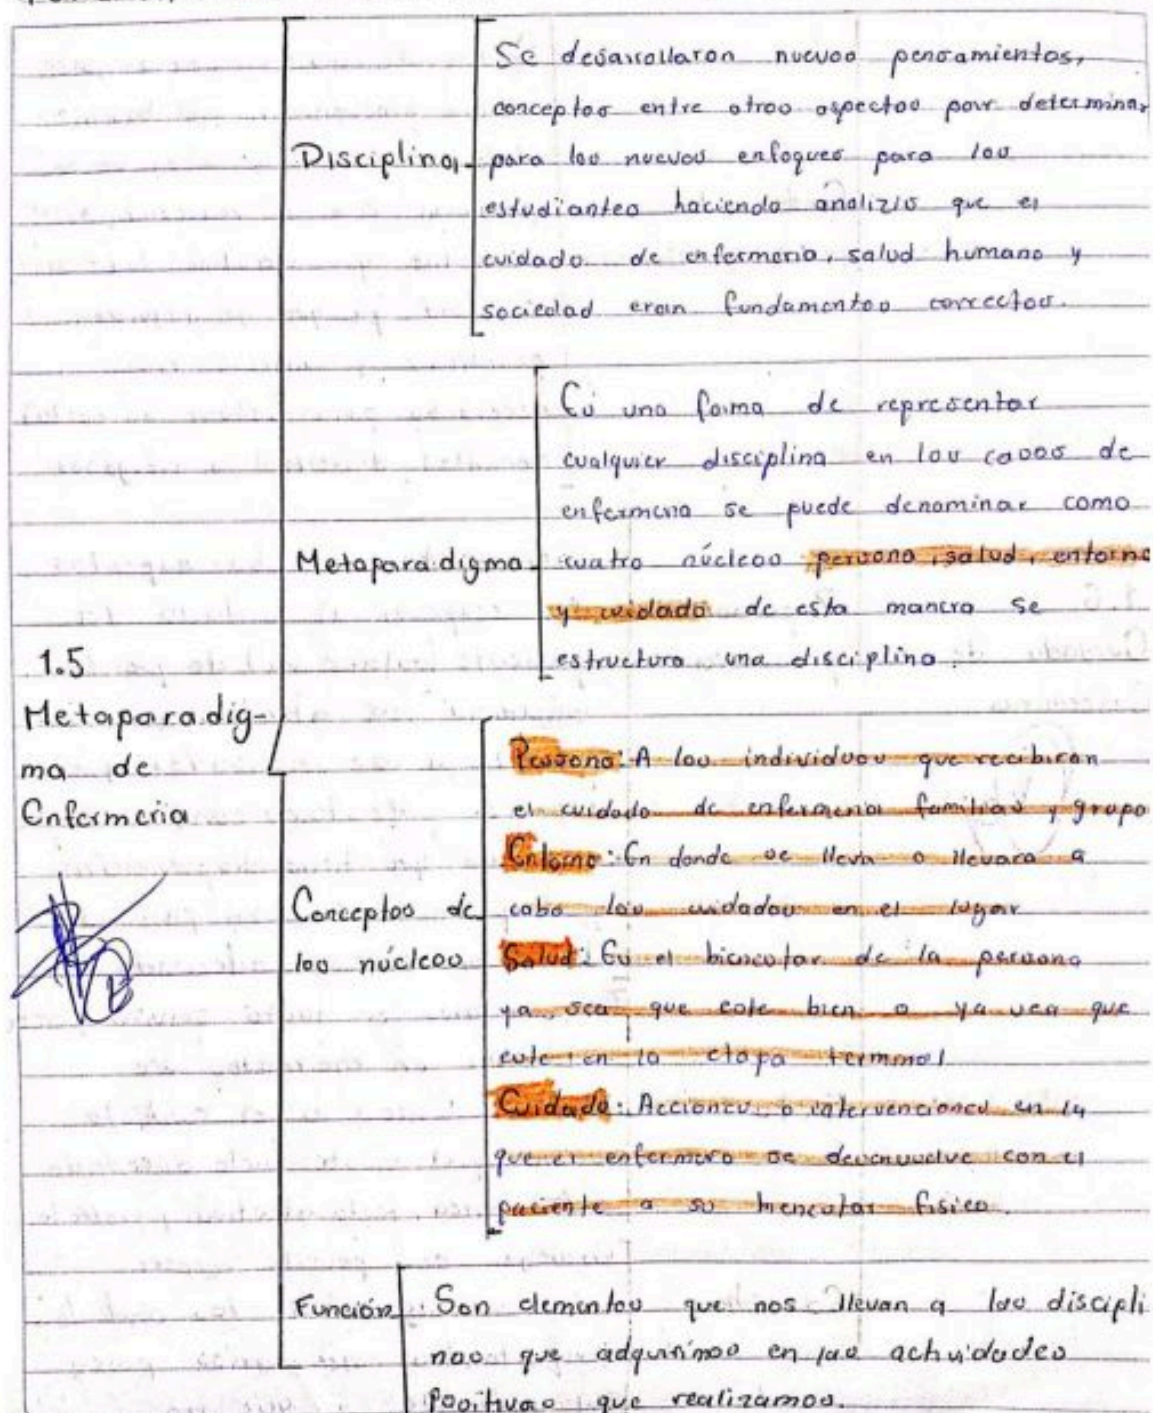 Se desarrollaron nuevos pensamientos,
conceptos entre otros aspectos para determinar
Disciplina para los nuevos enfoques para los
estudiantes haciendo análizis que el
cuidado de enfermeria, salud humano y
sociedad eran fundamentos correctos.
Es una forma de representar
cualquier disciplina en los casos de
enfermeria se puede denominar como
Metaparadigma cuatro núcleos persona, salud, entorno
y cuidado de esta manera se
estructura una disciplina.
1.5
Metaparadig-
ma de
Enfermeria
Persona: A los individuos que recibiran
el cuidado de enfermeria familias y grupo
Entorno: En donde se lleva o llevara a
Conceptos de cabo los cuidados en el lugar
los núcleos Salud: Es el bienestar de la persona
ya sea que este bien o ya sea que
este en la etapa terminal
Cuidado: Acciones o intervenciones en la
que el enfermero se desenvuelve con el
paciente a su bienestar fisico.
Función Son elementos que nos llevan a las discipli
nas que adquirimos en las actividades
positivas que realizamos.